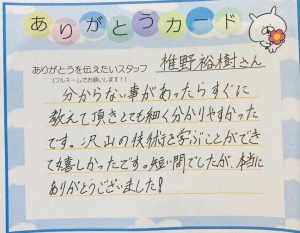 ありがとうカード
ありがとうを伝えたいスタッフ
(フルネームでお願いします！)
椎野裕樹さん
分からない事があったらすぐに
教えて頂きとても細く分かりやすかった
です。沢山の技術を学ぶことができ
て嬉しかったです。短い間でしたが、本当に
ありがとうございました!